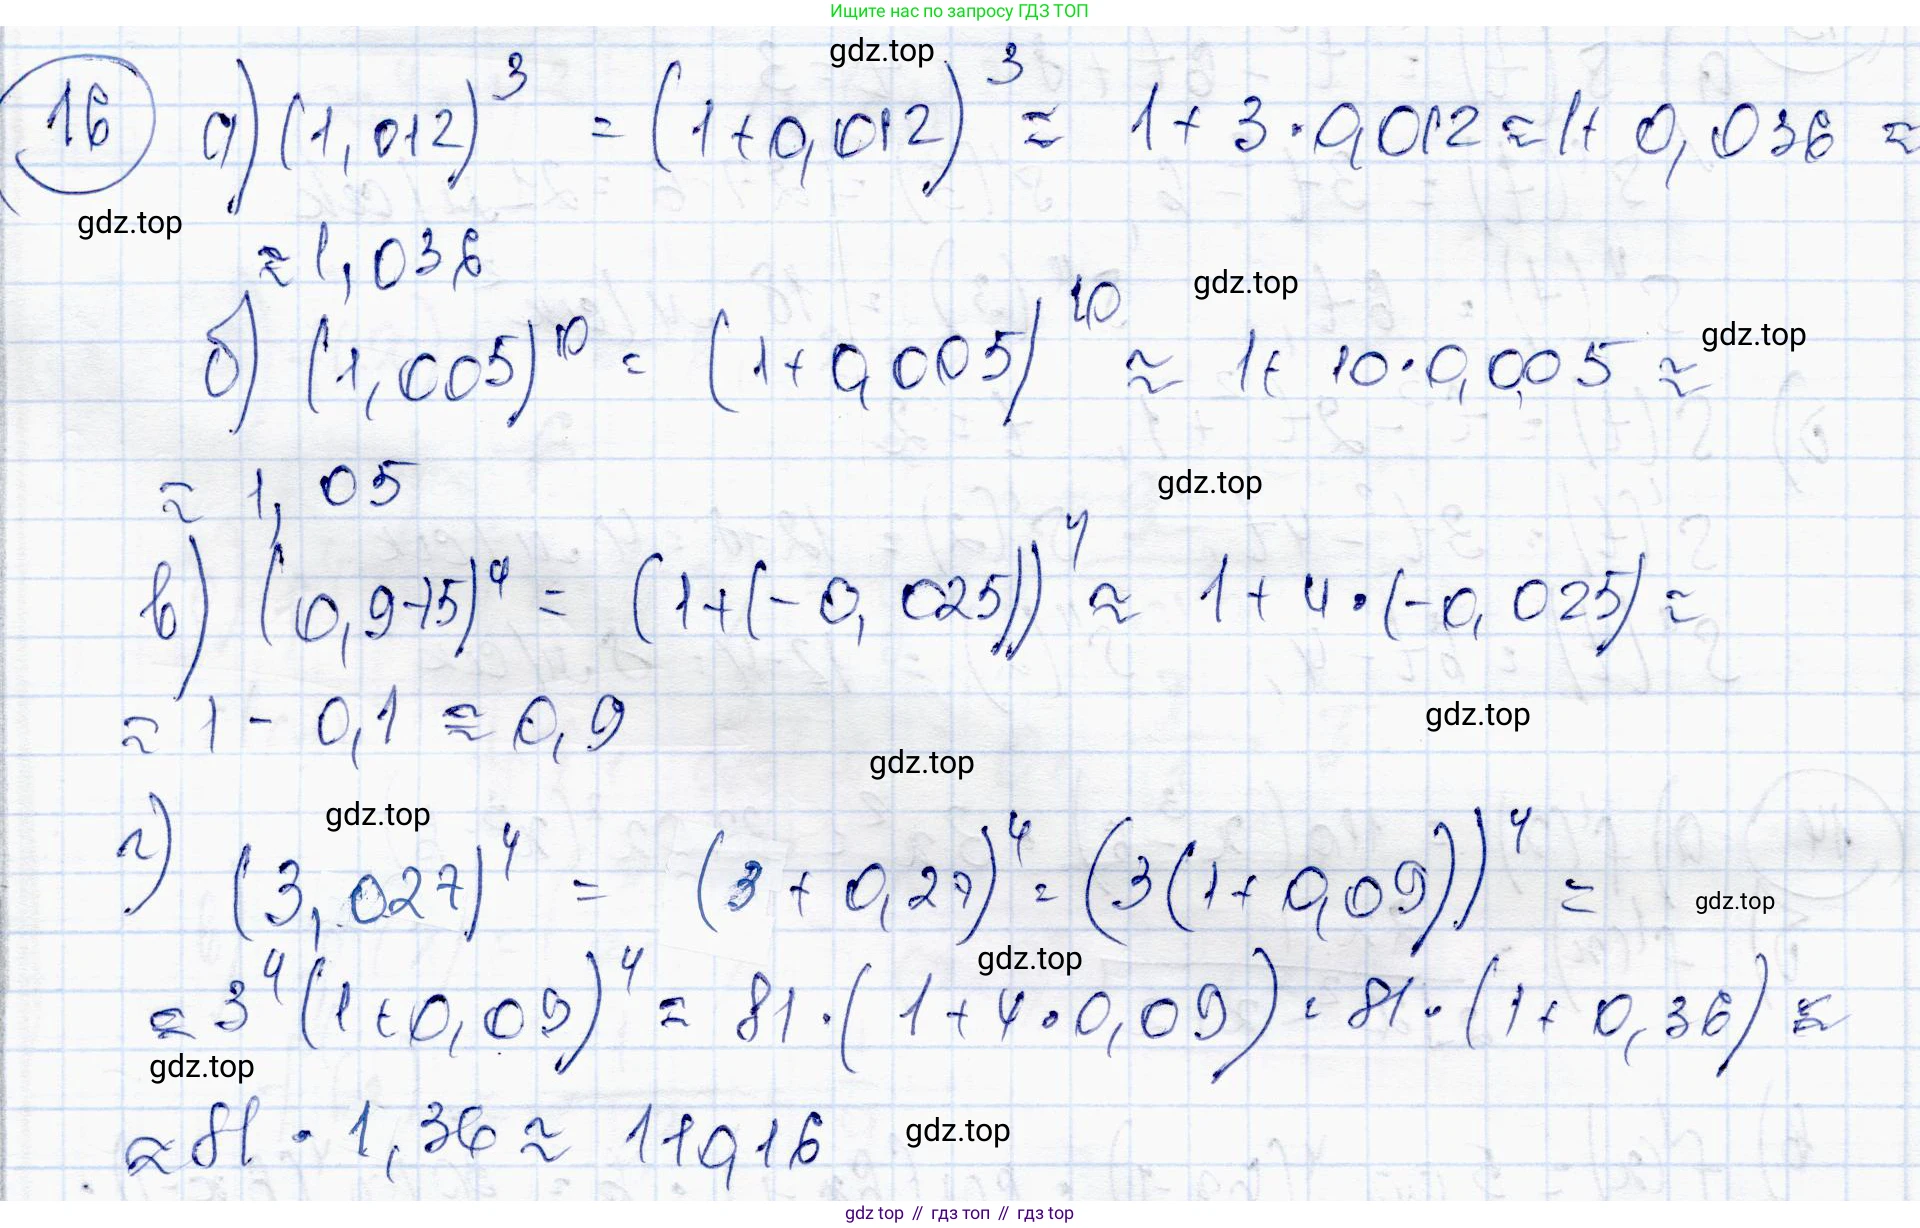 Ищите нас по запросу ГДЗ ТОП
gdz.top
16 а) (1,012)³ = (1+0,012)³ ≈ 1+3·0,012 ≈ 1+0,036 ≈
gdz.top
≈ 1,036
gdz.top
б) (1,005)¹⁰ = (1+0,005)¹⁰ ≈ 1+10·0,005 ≈
gdz.top
≈ 1,05
gdz.top
в) (0,975)⁴ = (1+(-0,025))⁴ ≈ 1+4·(-0,025) ≈
≈ 1-0,1 ≈ 0,9
gdz.top
gdz.top
gdz.top
г) (3,027)⁴ = (3+0,27)⁴ = (3(1+0,09))⁴ =
gdz.top
gdz.top
≈ 3⁴(1+0,09)⁴ ≈ 81·(1+4·0,09) = 81·(1+0,36) ≈
gdz.top
≈ 81·1,36 ≈ 110,16
gdz.top
gdz top // гдз топ // гдз top